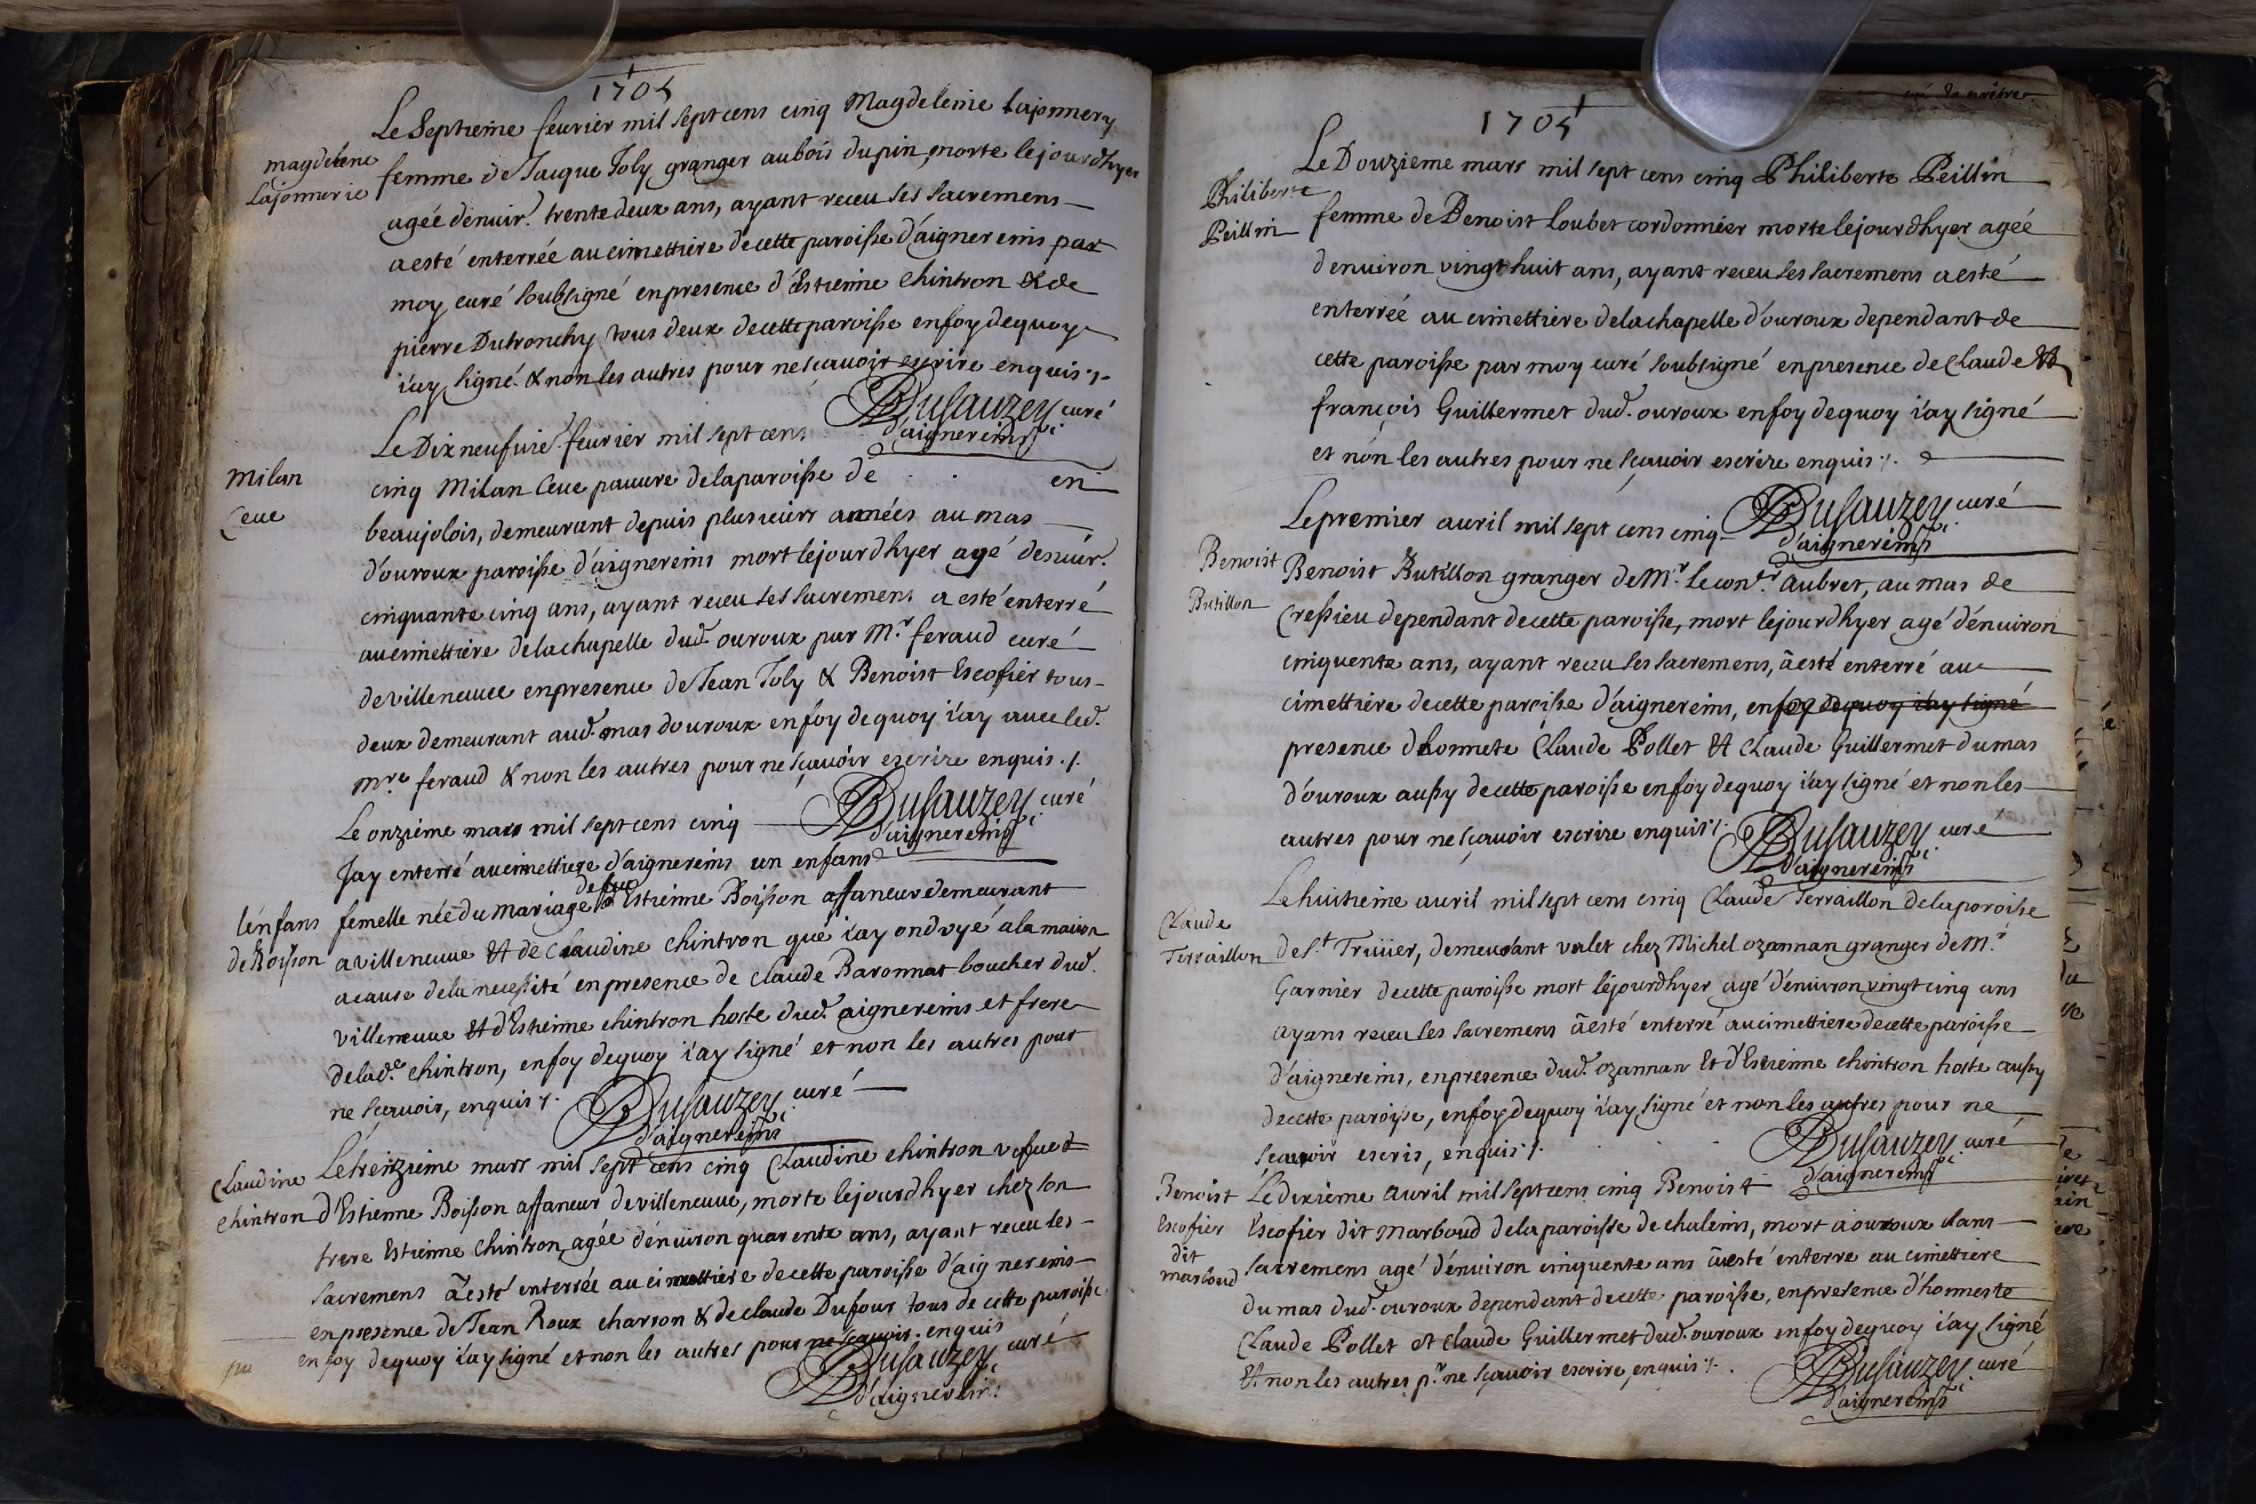 1705
Le Septieme feurier mil sept cens cinq Magdeleine Lajonnery
magdelene
Lajonnerie
femme de Jacque Joly granger au bois du pin, morte le jour dhyer
agée d'enuir. trente deux ans, ayant receu ses sacremens
a esté enterrée au cimettiere de cette paroisse d'aignereins par
moy curé soubsigné en presence d'Estienne Chintron & de
pierre Dutronchy tous deux de cette paroisse en foy de quoy
i'ay signé & non les autres pour ne sçauoir escrire enquis
DuSauzey curé
d'aignereins
Le Dixneufuie. feurier mil sept cens
Milan
Ceue
cinq Milan Ceue pauure de la paroisse de . . en
beaujolois, demeurant depuis plusieurs années au mas
d'ouroux paroisse d'aignereins mort le jour dhyer agé denuir.
cinquante cinq ans, ayant receu ses sacremens a esté enterré
au cimettiere de la chapelle dud. ouroux par Mr. feraud curé
de villeneuue en presence de Jean Joly & Benoist Escofier tous
deux demeurant aud. mas douroux en foy de quoy i'ay auec led.
mre. feraud & non les autres pour ne sçauoir escrire enquis
DuSauzey curé
d'aignereins
Le onzieme mars mil sept cens cinq
Jay enterré au cimettiere d'aignereins un enfans
de feu
l'enfans
de Boisson
femelle née du mariage Estienne Boisson affaneur demeurant
a villeneuue et de Claudine Chintron que i'ay ondoyé a la maison
a cause de la necessité en presence de Claude Baronnat boucher dud.
villeneuue et d'Estienne chintron hoste dud. aignereins et frere
de lade. chintron, en foy de quoy i'ay signé et non les autres pour
ne scauoir, enquis
DuSauzey curé
d'aignereins
Claudine
chintron
Le treizieme mars mil sept cens cinq Claudine chintron vefue
d'Estienne Boisson affaneur de villeneuue, morte le jour dhyer chez son
frere Estienne Chintron, agée d'enuiron quarente ans, ayant receu les
sacremens a esté enterrée au cimettiere de cette paroisse d'aignereins
en presence de Jean Roux charron & de claude Dufour tous de cette paroisse
en foy de quoy i'ay signé et non les autres pour ne sçauoir. enquis
DuSauzey curé
d'aignereins
1705
Le Douzieme mars mil sept cens cinq Philiberte Peillin
Philiberte
Peillin
femme de Benoist Loubet cordonnier morte le jour dhyer agée
d'enuiron vingt huit ans, ayant receu ses sacremens a esté
enterrée au cimettiere de la chapelle d'ouroux dependant de
cette paroisse par moy curé soubsigné en presence de Claude et
françois Guillermet dud. ouroux en foy de quoy i'ay signé
et non les autres pour ne sçauoir escrire enquis
DuSauzey curé
d'aignereins
Le premier auril mil sept cens cinq
Benoist
Butillon
Benoist Butillon granger de Mr. le conr. Aubret, au mas de
Cressieu dependant de cette paroisse, mort le jour dhyer agé d'enuiron
cinquente ans, ayant receu ses sacremens, a esté enterré au
cimettiere de cette paroisse d'aignereins, en foy de quoy i'ay signé
presence d'honnete Claude Pollet et Claude Guillermet du mas
d'ouroux aussy de cette paroisse en foy de quoy i'ay signé et non les
autres pour ne sçauoir escrire enquis
DuSauzey curé
d'aignereins
Le huitieme auril mil sept cens cinq Claude Terraillon de la paroisse
Claude
Terraillon
de St. Triuier, demeurant valet chez Michel ozannan granger de Mr.
Garnier de cette paroisse mort le jour dhyer agé d'enuiron vingt cinq ans
ayans receu les sacremens a esté enterré au cimettiere de cette paroisse
d'aignereins, en presence dud. ozannan et d'Estienne chintron hoste aussy
de cette paroisse, en foy de quoy i'ay signé et non les autres pour ne
scauoir escris, enquis
DuSauzey curé
d'aignereins
Benoist
Escofier
dit
marboud
Le dixieme auril mil sept cens cinq Benoist
Escofier dit marboud de la paroisse de chaleins, mort a ouroux sans
sacremens agé d'enuiron cinquente ans a esté enterre au cimettiere
du mas dud. ouroux dependant de cette paroisse, en presence d'honneste
Claude Pollet et claude Guillermet dud. ouroux en foy de quoy i'ay signé
et non les autres pr. ne sçauoir escrire, enquis
DuSauzey curé
d'aignereins